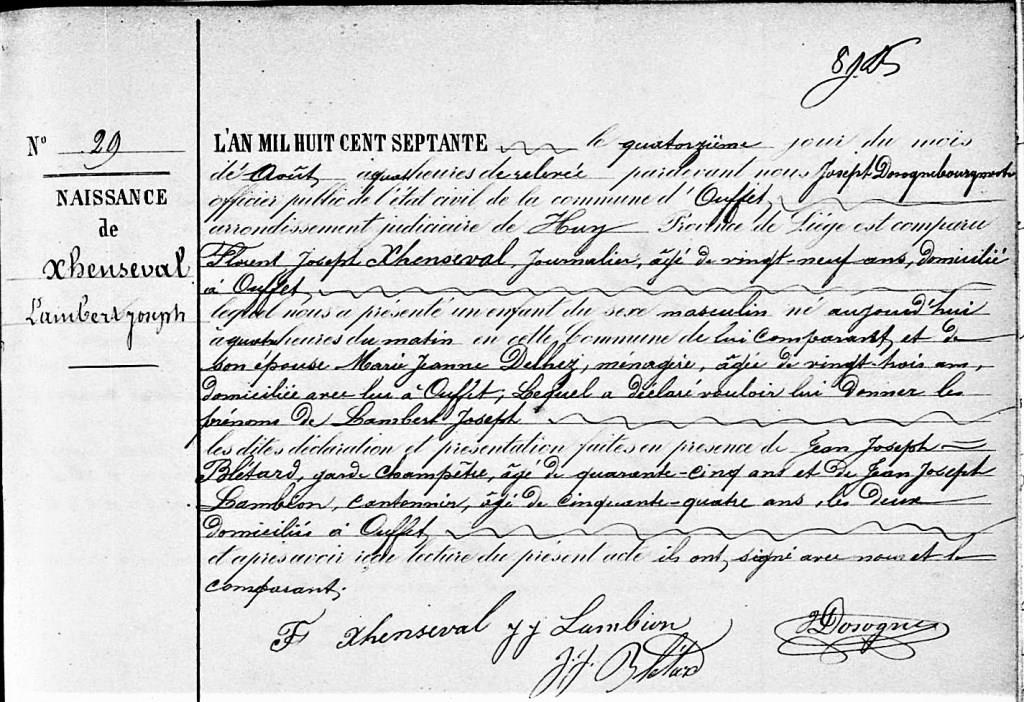 8 J.D
N° 29
NAISSANCE
de
Xhenseval
Lambert Joseph
L'AN MIL HUIT CENT SEPTANTE le quatorzième jour du mois
de Août, à quatre heures de relevée pardevant nous Joseph Dosogne bourgmestre
officier public de l'état civil de la commune d'Ouffet,
arrondissement judiciaire de Huy Province de Liége est comparu
Florent Joseph Xhenseval, Journalier, âgé de vingt-neuf ans, domicilié
à Ouffet,
lequel nous a présenté un enfant du sexe masculin né aujourd'hui
à quatre heures du matin en cette Commune de lui Comparant, et de
son épouse Marie Jeanne Delhez, ménagère, âgée de vingt-trois ans,
domiciliée avec lui à Ouffet, Lequel a déclaré vouloir lui donner les
prénoms de Lambert Joseph
les dites déclaration et présentation faites en présence de Jean Joseph
Blétard, garde champêtre, âgé de quarante-cinq ans et de Jean Joseph
Lambion, cantonnier, âgé de cinquante-quatre ans, les deux
domiciliés à Ouffet,
et après avoir reçu lecture du présent acte ils ont signé avec nous et le
comparant.
F Xhenseval J J Lambion J Dosogne
J.J. Blétard